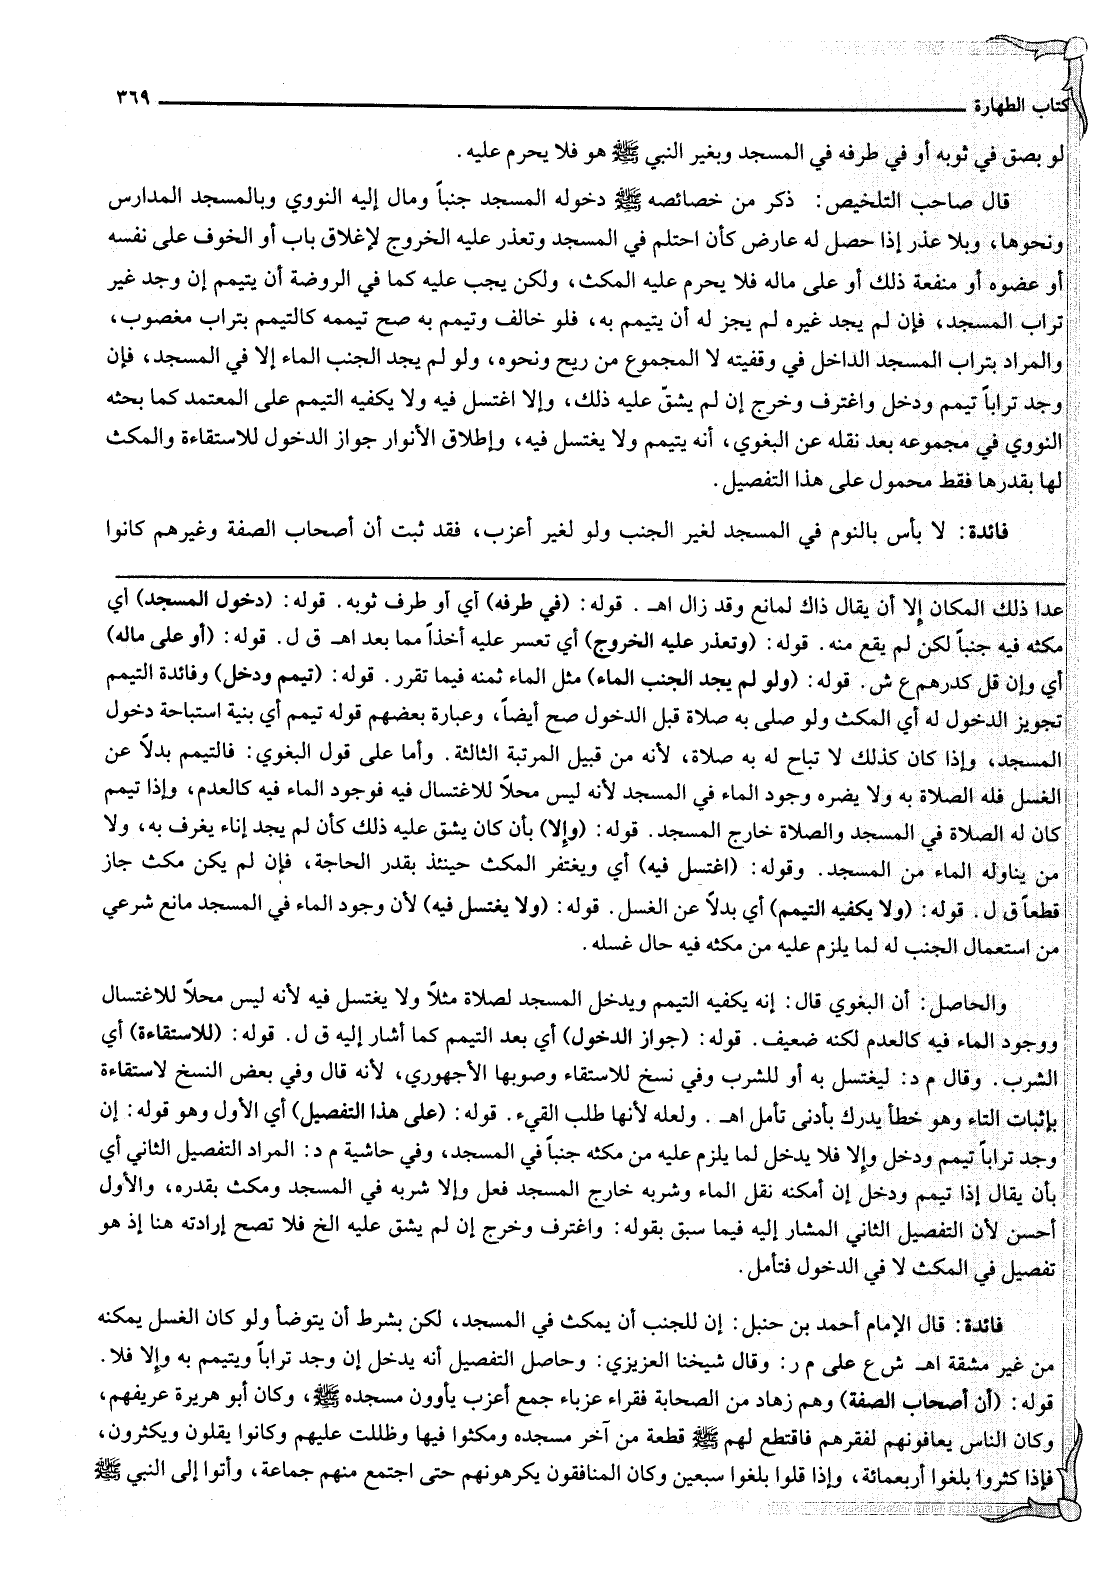 كتاب الطهارة ٣٦٩
لو بصق في ثوبه أو في طرفه في المسجد وبغير النبي ﷺ هو فلا يحرم عليه.
قال صاحب التلخيص: ذكر من خصائصه ﷺ دخوله المسجد جنباً ومال إليه النووي وبالمسجد المدارس
ونحوها، وبلا عذر إذا حصل له عارض كأن احتلم في المسجد وتعذر عليه الخروج لإغلاق باب أو الخوف على نفسه
أو عضوه أو منفعة ذلك أو على ماله فلا يحرم عليه المكث، ولكن يجب عليه كما في الروضة أن يتيمم إن وجد غير
تراب المسجد، فإن لم يجد غيره لم يجز له أن يتيمم به، فلو خالف وتيمم به صح تيممه كالتيمم بتراب مغصوب،
والمراد بتراب المسجد الداخل في وقفيته لا المجموع من ريح ونحوه، ولو لم يجد الجنب الماء إلا في المسجد، فإن
وجد تراباً تيمم ودخل واغترف وخرج إن لم يشقّ عليه ذلك، وإلا اغتسل فيه ولا يكفيه التيمم على المعتمد كما بحثه
النووي في مجموعه بعد نقله عن البغوي، أنه يتيمم ولا يغتسل فيه، وإطلاق الأنوار جواز الدخول للاستقاءة والمكث
لها بقدرها فقط محمول على هذا التفصيل.
فائدة: لا بأس بالنوم في المسجد لغير الجنب ولو لغير أعزب، فقد ثبت أن أصحاب الصفة وغيرهم كانوا
عدا ذلك المكان إلا أن يقال ذاك لمانع وقد زال اهـ. قوله: (في طرفه) أي أو طرف ثوبه. قوله: (دخول المسجد) أي
مكثه فيه جنباً لكن لم يقع منه. قوله: (وتعذر عليه الخروج) أي تعسر عليه أخذاً مما بعد اهـ ق ل. قوله: (أو على ماله)
أي وإن قل كدرهم ع ش. قوله: (ولو لم يجد الجنب الماء) مثل الماء ثمنه فيما تقرر. قوله: (تيمم ودخل) وفائدة التيمم
تجويز الدخول له أي المكث ولو صلى به صلاة قبل الدخول صح أيضاً، وعبارة بعضهم قوله تيمم أي بنية استباحة دخول
المسجد، وإذا كان كذلك لا تباح له به صلاة، لأنه من قبيل المرتبة الثالثة. وأما على قول البغوي: فالتيمم بدلاً عن
الغسل فله الصلاة به ولا يضره وجود الماء في المسجد لأنه ليس محلاً للاغتسال فيه فوجود الماء فيه كالعدم، وإذا تيمم
كان له الصلاة في المسجد والصلاة خارج المسجد. قوله: (وإلا) بأن كان يشق عليه ذلك كأن لم يجد إناء يغرف به، ولا
من يناوله الماء من المسجد. وقوله: (اغتسل فيه) أي ويغتفر المكث حينئذ بقدر الحاجة، فإن لم يكن مكث جاز
قطعاً ق ل. قوله: (ولا يكفيه التيمم) أي بدلاً عن الغسل. قوله: (ولا يغتسل فيه) لأن وجود الماء في المسجد مانع شرعي
من استعمال الجنب له لما يلزم عليه من مكثه فيه حال غسله.
والحاصل: أن البغوي قال: إنه يكفيه التيمم ويدخل المسجد لصلاة مثلاً ولا يغتسل فيه لأنه ليس محلاً للاغتسال
ووجود الماء فيه كالعدم لكنه ضعيف. قوله: (جواز الدخول) أي بعد التيمم كما أشار إليه ق ل. قوله: (للاستقاءة) أي
الشرب. وقال م د: ليغتسل به أو للشرب وفي نسخ للاستقاء وصوبها الأجهوري، لأنه قال وفي بعض النسخ لاستقاءة
بإثبات التاء وهو خطأ يدرك بأدنى تأمل اهـ. ولعله لأنها طلب القيء. قوله: (على هذا التفصيل) أي الأول وهو قوله: إن
وجد تراباً تيمم ودخل وإلا فلا يدخل لما يلزم عليه من مكثه جنباً في المسجد، وفي حاشية م د: المراد التفصيل الثاني أي
بأن يقال إذا تيمم ودخل إن أمكنه نقل الماء وشربه خارج المسجد فعل وإلا شربه في المسجد ومكث بقدره، والأول
أحسن لأن التفصيل الثاني المشار إليه فيما سبق بقوله: واغترف وخرج إن لم يشق عليه الخ فلا تصح إرادته هنا إذ هو
تفصيل في المكث لا في الدخول فتأمل.
فائدة: قال الإمام أحمد بن حنبل: إن للجنب أن يمكث في المسجد، لكن بشرط أن يتوضأ ولو كان الغسل يمكنه
من غير مشقة اهـ ش ع على م ر: وقال شيخنا العزيزي: وحاصل التفصيل أنه يدخل إن وجد تراباً ويتيمم به وإلا فلا.
قوله: (أن أصحاب الصفة) وهم زهاد من الصحابة فقراء عزباء جمع أعزب يأوون مسجده ﷺ، وكان أبو هريرة عريفهم،
وكان الناس يعافونهم لفقرهم فاقتطع لهم ﷺ قطعة من آخر مسجده ومكثوا فيها وظللت عليهم وكانوا يقلون ويكثرون،
فإذا كثروا بلغوا أربعمائة، وإذا قلوا بلغوا سبعين وكان المنافقون يكرهونهم حتى اجتمع منهم جماعة، وأتوا إلى النبي ﷺ